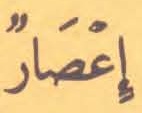 إِعْصَارٌ